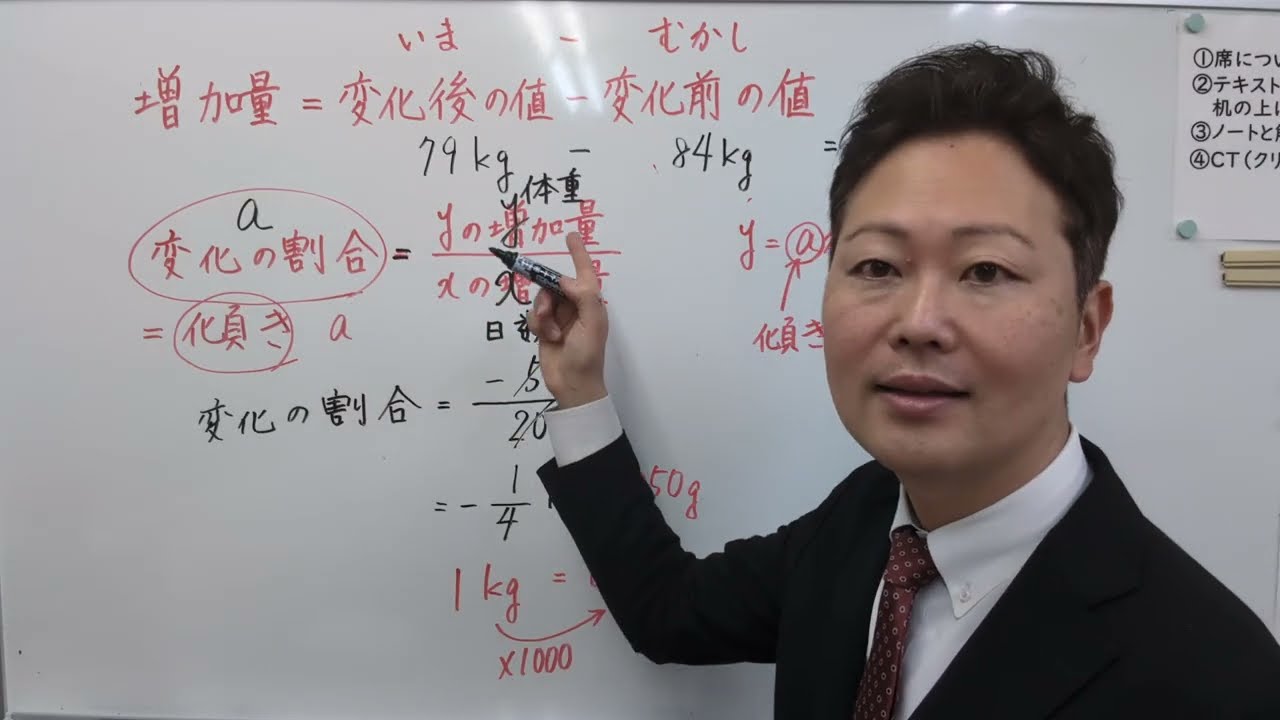 いま － むかし
増加量 = 変化後の値 － 変化前の値
79kg － 84kg =
a
変化の割合 = yの増加量
xの
y 体重
x 日
= 傾き a
y = a
傾き
変化の割合 = -5
20
= - 1
4
50g
1kg =
×1000
①席につい
②テキスト
机の上に
③ノートと
④CT(クリ